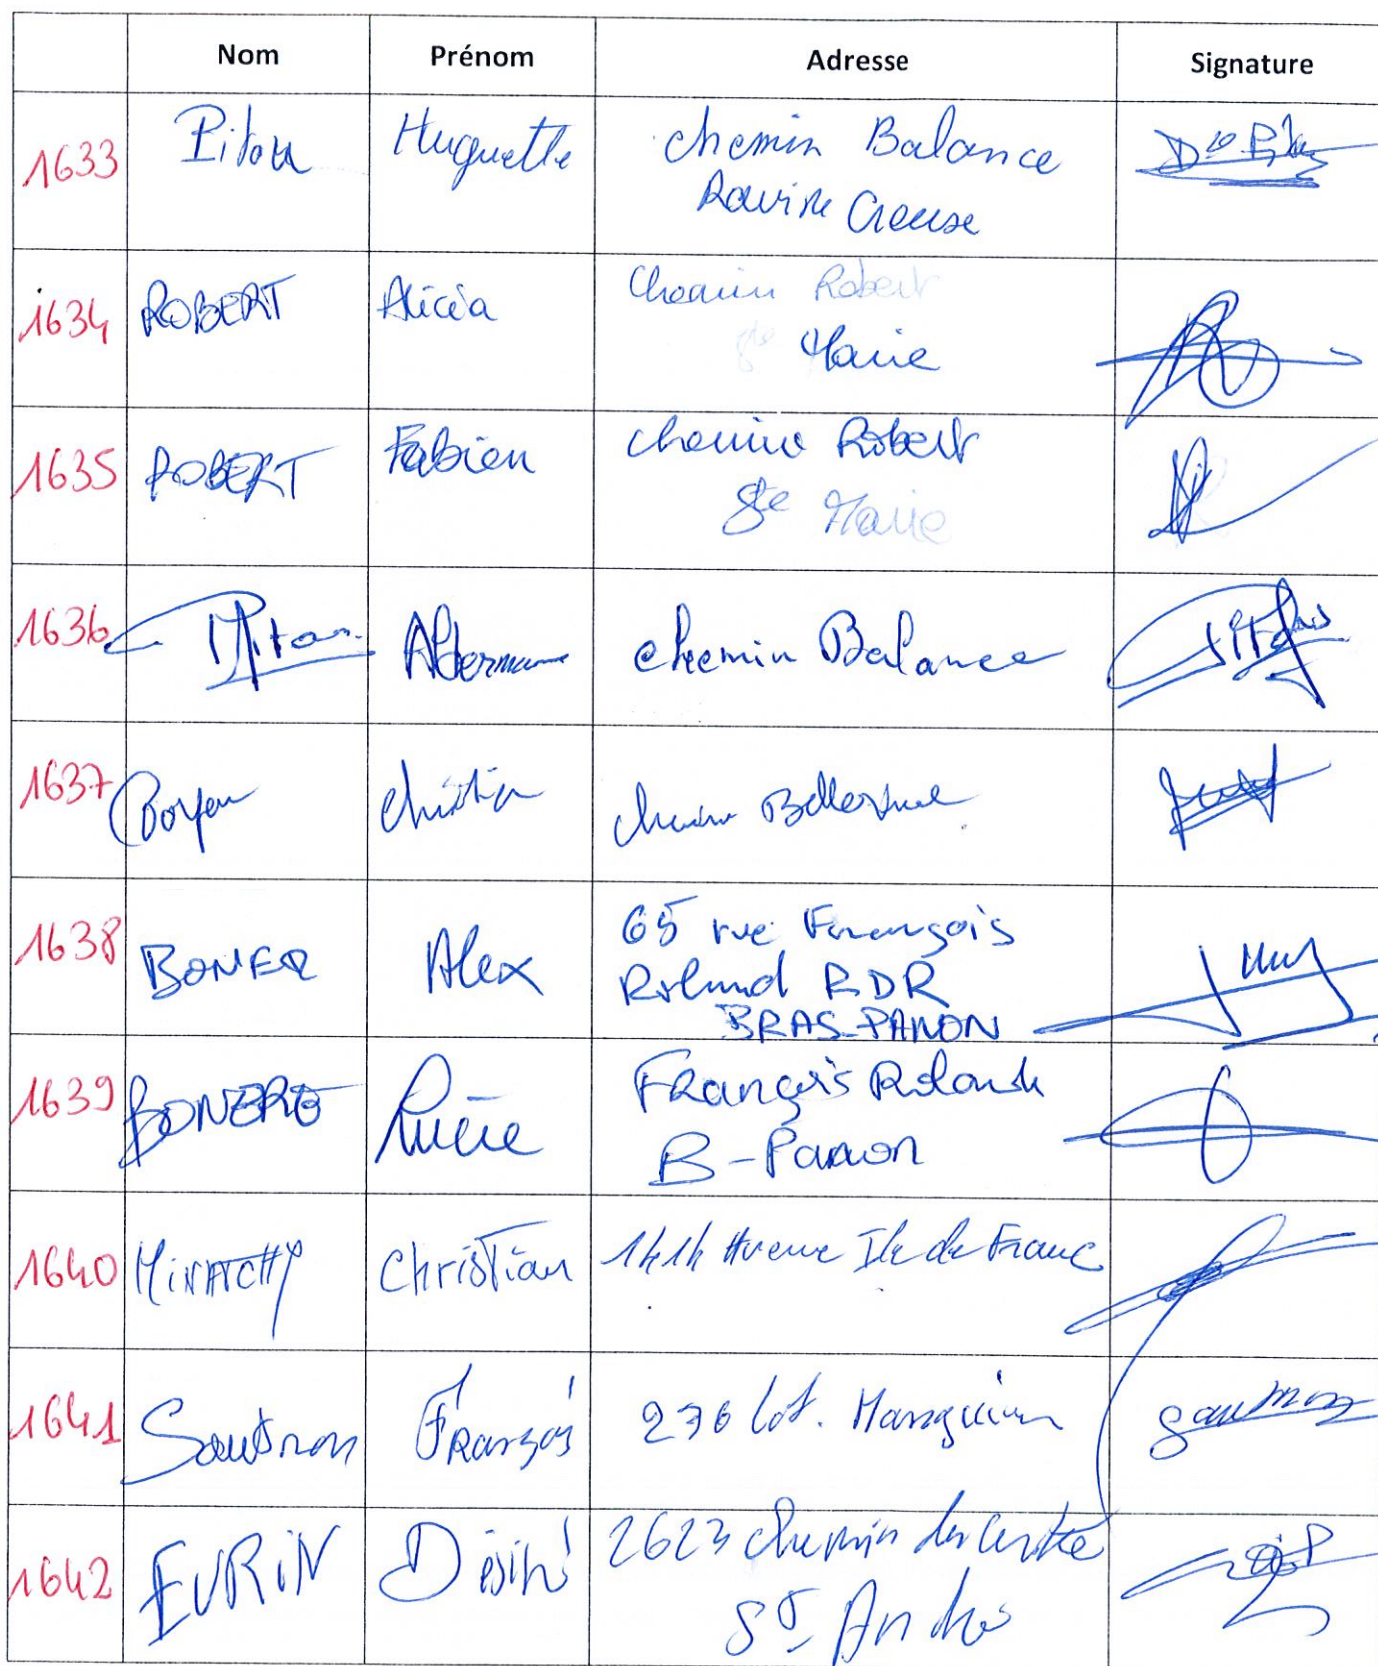 Nom Prénom Adresse Signature
1633 Pitou Huguette chemin Balance
Ravine Creuse
1634 ROBERT Alicia Chemin Robert
Ste Marie
1635 ROBERT Fabien chemin Robert
Ste Marie
1636 Pitou chemin Balance
1637 Boyer Christian chemin Bellevue
1638 BONER Alex 65 rue François
Roland RDR
BRAS-PANON
1639 Lucie François Roland
B-Panon
1640 MINATCHY Christian 1414 Avenue Ile de France
1641 Sautron François 276 lot.
1642 EVRIN Désiré 2623 chemin du centre
St André